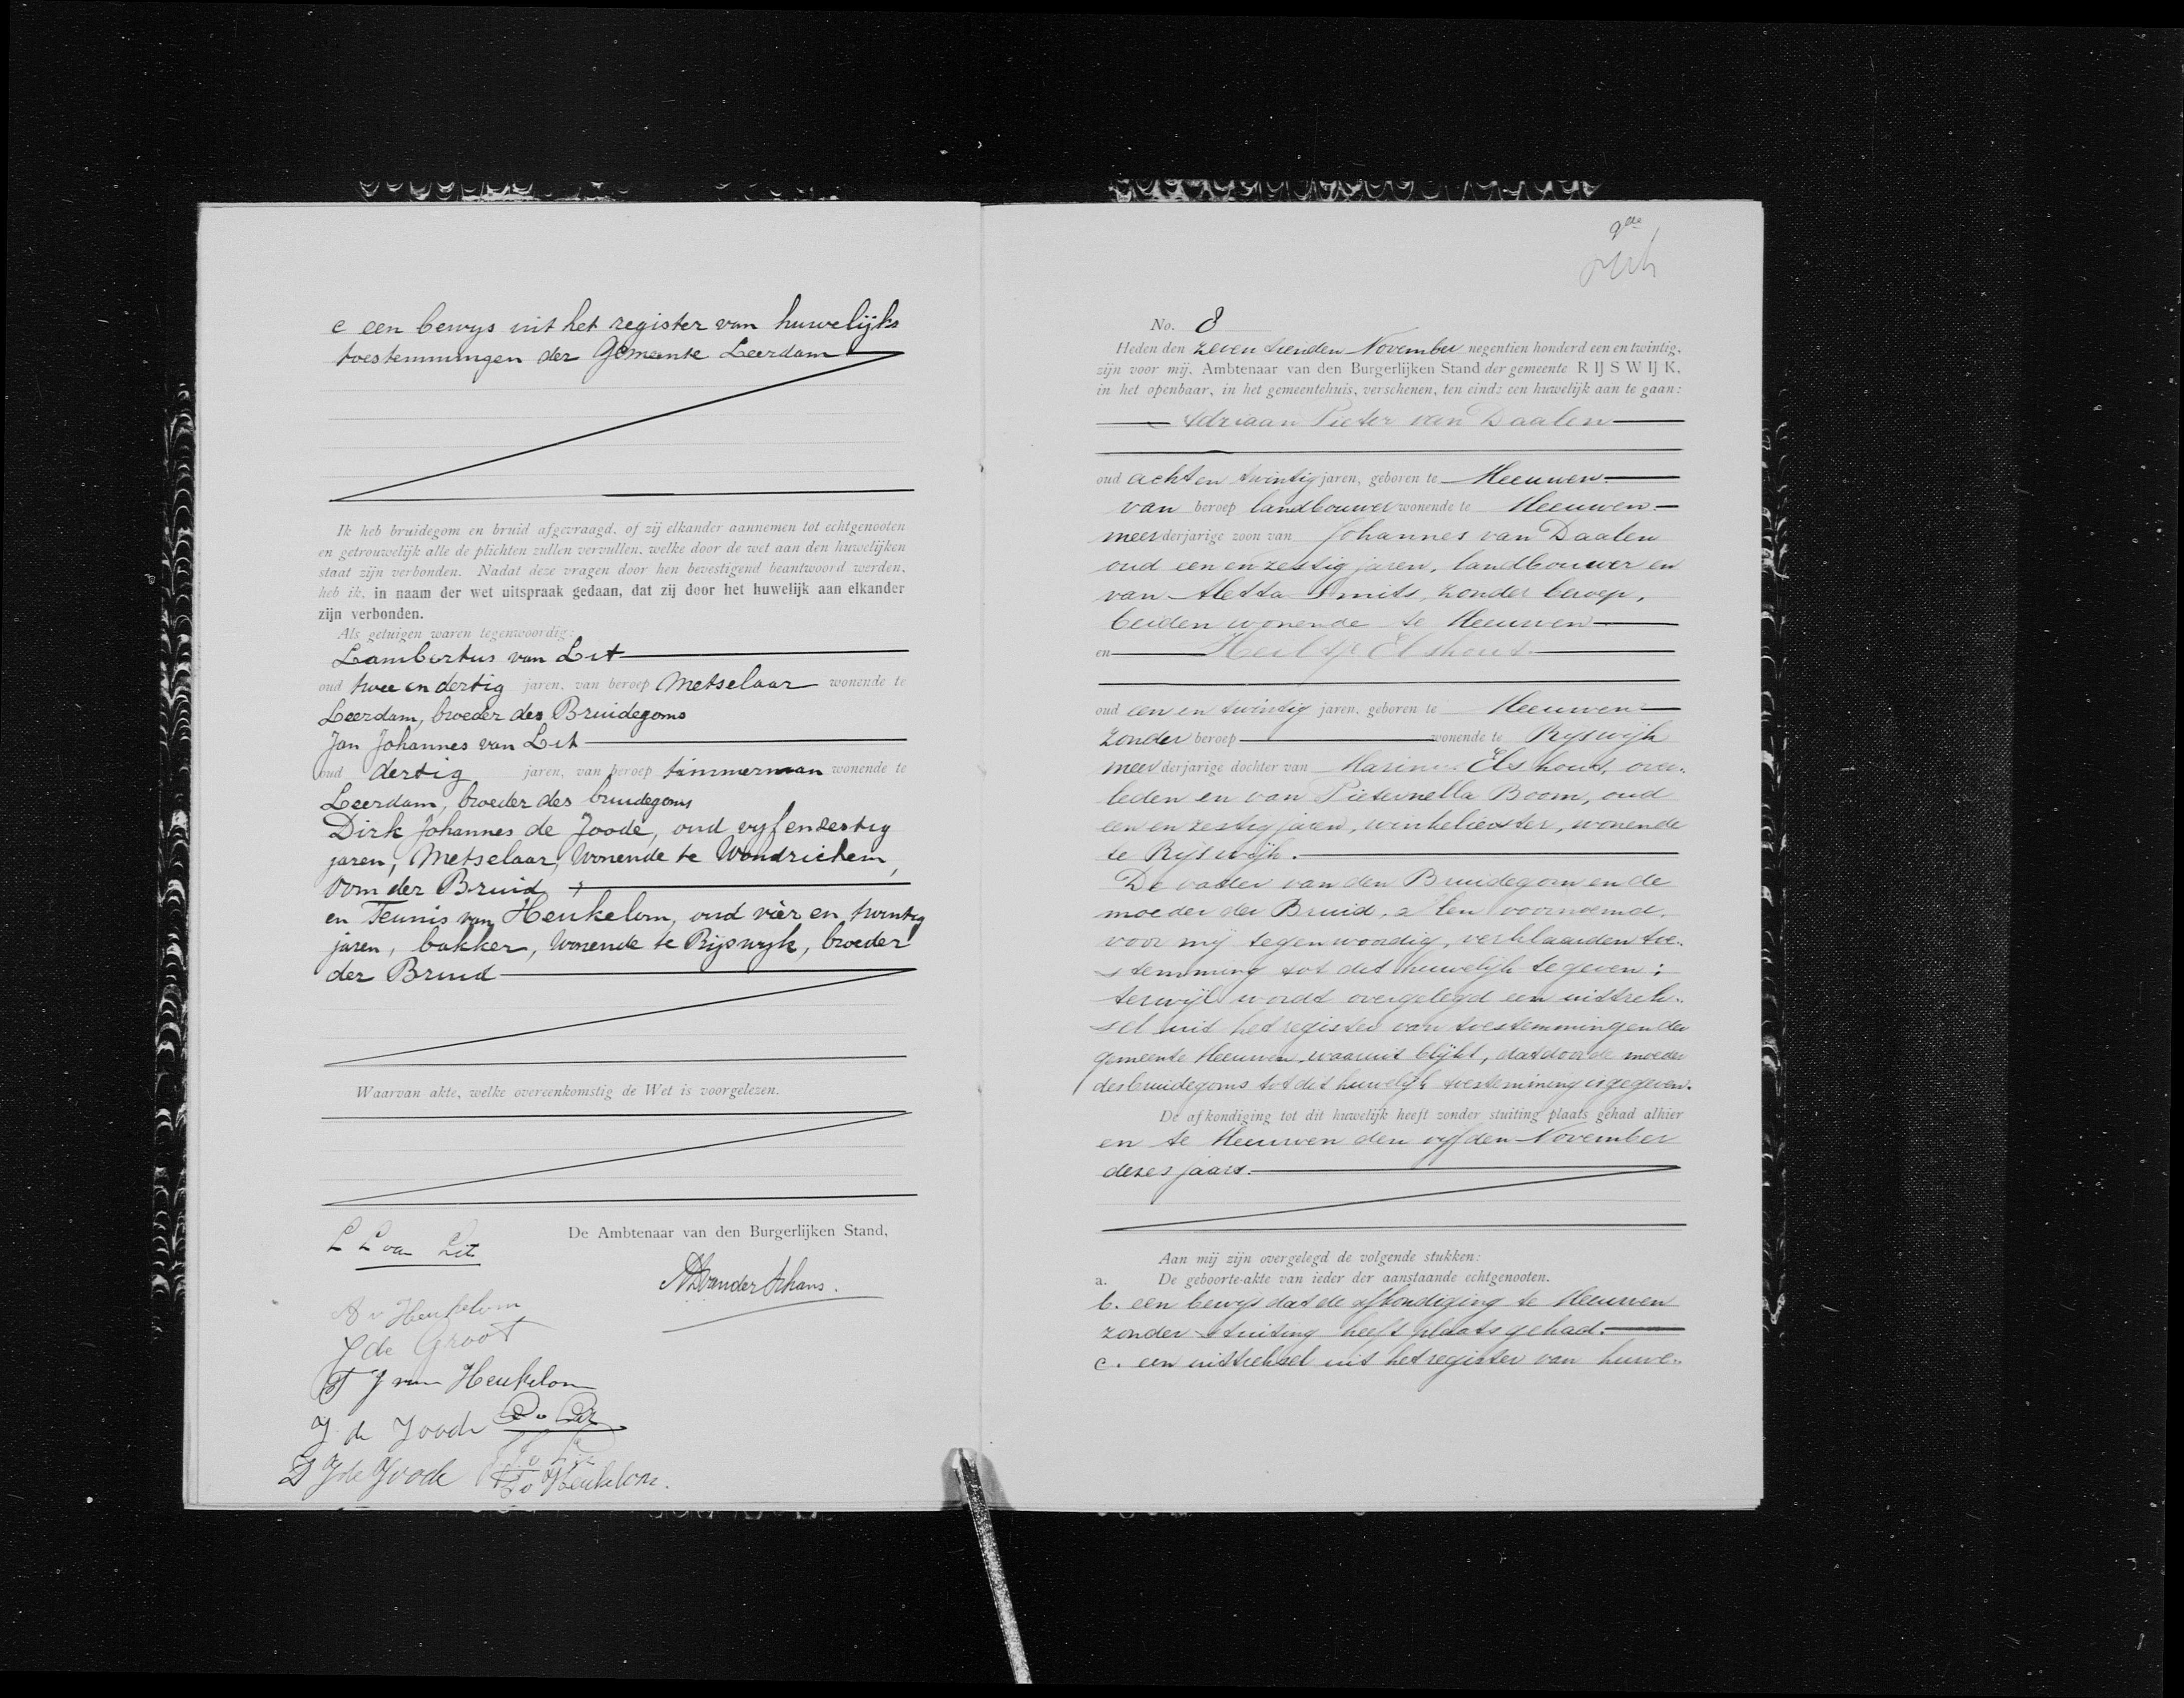 c een bewys uit het register van huwelijks
toestemmingen der Gemeente Leerdam
Ik heb bruidegom en bruid afgevraagd, of zij elkander aannemen tot echtgenooten
en getrouwelijk alle de plichten zullen vervullen, welke door de wet aan den huwelijken
staat zijn verbonden. Nadat deze vragen door hen bevestigend beantwoord werden,
heb ik, in naam der wet uitspraak gedaan, dat zij door het huwelijk aan elkander
zijn verbonden.
Als getuigen waren tegenwoordig:
Lambertus van Lit
oud twee en dertig jaren, van beroep Metselaar wonende te
Leerdam, broeder des Bruidegoms
Jan Johannes van Lit
oud dertig jaren, van beroep timmerman wonende te
Leerdam, broeder des bruidegoms
Dirk Johannes de Joode, oud vyf en zestig
jaren, Metselaar, wonende te Woudrichem,
oom der Bruid
en Teunis van Heukelom, oud vier en twintig
jaren, bakker, wonende te Rijswyk, broeder
der Bruid
Waarvan akte, welke overeenkomstig de Wet is voorgelezen.
De Ambtenaar van den Burgerlijken Stand,
L L van Lit
A v Heukelom
J de Groot
T J van Heukelom
J. de Joode
D J de Joode
T v Heukelom.
9de
No. 8
Heden den zeventienden November negentien honderd een en twintig,
zijn voor mij, Ambtenaar van den Burgerlijken Stand der gemeente RIJSWIJK,
in het openbaar, in het gemeentehuis, verschenen, ten einde een huwelijk aan te gaan:
Adriaan Pieter van Daalen
oud acht en twintig jaren, geboren te Meeuwen
van beroep landbouwer wonende te Meeuwen
meerderjarige zoon van Johannes van Daalen
oud een en zestig jaren, landbouwer en
van Aletta Smits, zonder beroep,
beiden wonende te Meeuwen
en Heiltje Elshout
oud een en twintig jaren, geboren te Meeuwen
zonder beroep wonende te Ryswijk
meerderjarige dochter van Marinus Elshout, over-
leden en van Pieternella Boom, oud
een en zestig jaren, winkelierster, wonende
te Ryswijk.
De vader van den Bruidegom en de
moeder der Bruid, allen voornoemd,
voor mij tegenwoordig, verklaarden toe-
stemming tot dit huwelijk te geven;
terwijl wordt overgelegd een uittrek-
sel uit het register van toestemmingen der
gemeente Meeuwen waaruit blijkt, dat door de moeder
des bruidegoms tot dit huwelijk toestemming is gegeven.
De afkondiging tot dit huwelijk heeft zonder stuiting plaats gehad alhier
en te Meeuwen den vyfden November
dezes jaars.
Aan mij zijn overgelegd de volgende stukken:
a. De geboorte-akte van ieder der aanstaande echtgenooten.
b. een bewys dat de afkondiging te Meeuwen
zonder stuiting heeft plaats gehad.
c. een uittreksel uit het register van huwe-